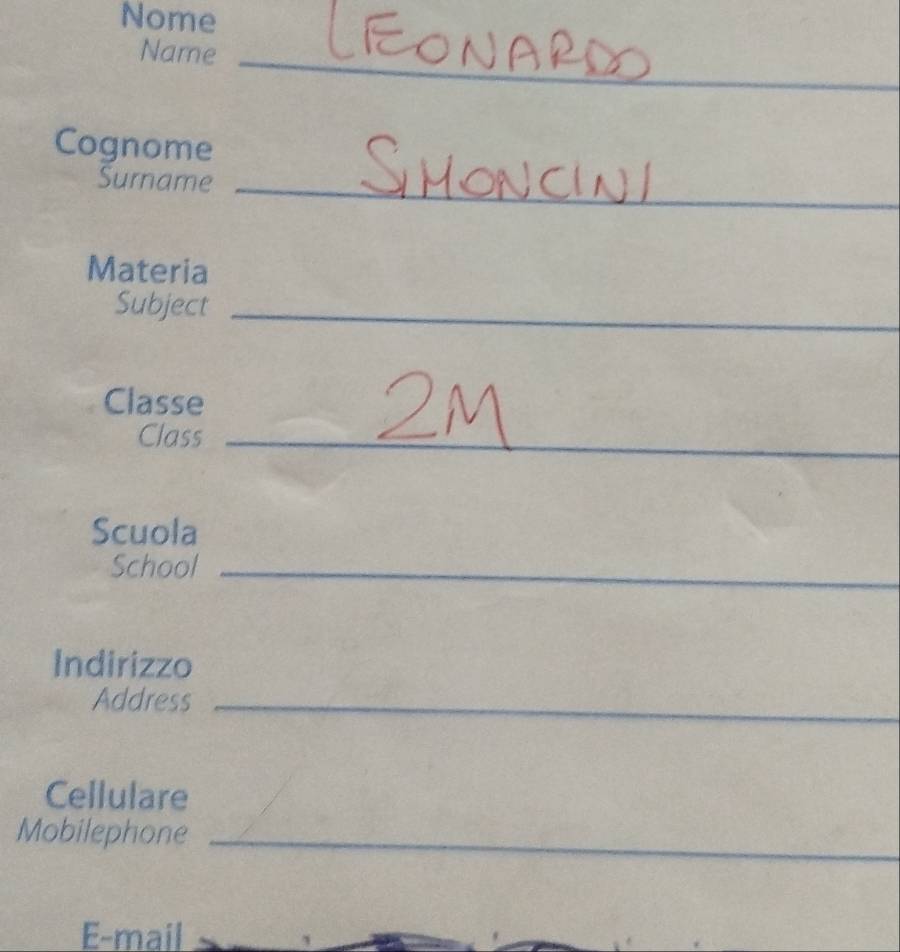 Nome LEONARDO
Name
Cognome SIMONCINI
Surname
Materia
Subject
Classe 2M
Class
Scuola
School
Indirizzo
Address
Cellulare
Mobilephone
E-mail